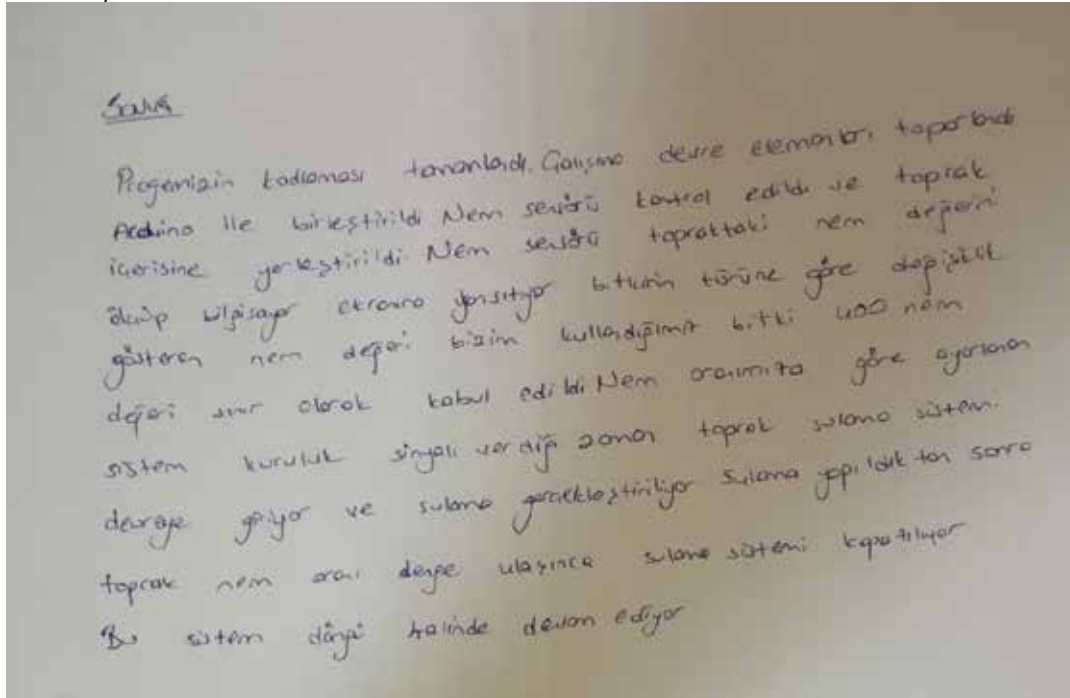 Sonuç
Progemizin kodlaması tamamlandı. Çalışma devre elemanları toparlandı
Arduino ile birleştirildi Nem sensörü kontrol edildi ve toprak
içerisine yerleştirildi. Nem sensörü topraktaki nem değerini
ölçüp bilgisayar ekranına yansıtıyor bitkinin türüne göre değişiklik
gösteren nem değeri bizim kullandığımız bitki 400 nem
değeri sınır olarak kabul edildi Nem oranımıza göre ayarlanan
sistem kuruluk sinyali verdiği zaman toprak sulama sistemi
devreye giriyor ve sulama gerçekleştiriliyor Sulama yapıldıktan sonra
toprak nem oranı denge ulaşınca sulama sistemi kapatılıyor
Bu sistem döngü halinde devam ediyor